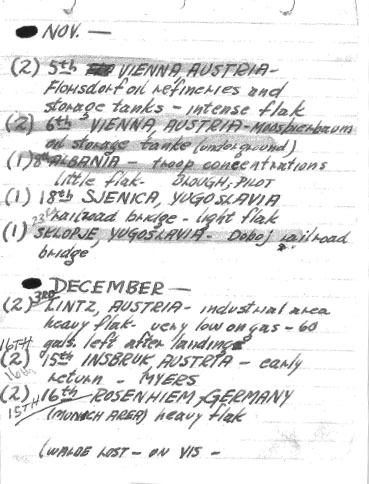 NOV. —
(2) 5th VIENNA, AUSTRIA-
Flohsdorf oil refineries and
storage tanks - intense flak
(2) 6th VIENNA, AUSTRIA-Moosbierbaum
oil storage tanke (underground)
(1) 8th ALBANIA - troop concentrations
Little flak- BLOUGH, PILOT
(1) 18th SJENICA, YUGOSLAVIA
23rd railroad bridge - light flak
(1) SKLOPJE, YUGOSLAVIA- Doboj railroad
bridge
DECEMBER —
(2) 3RD LINTZ, AUSTRIA- industrial area
heavy flak- very low on gas - 60
gals. left after landing
16TH
(2) 15th INSBRUK, AUSTRIA - early
16th return - MYERS
(2) 16th ROSENHIEM, GERMANY
15TH (MUNICH AREA) heavy flak
(WALDE LOST - ON VIS -